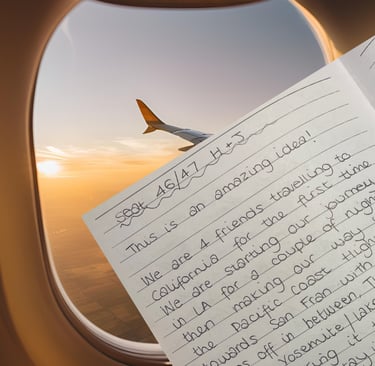 seat 46/47 H + J
This is an amazing idea!
We are 4 friends travelling to
California for the first time
We are starting our journey
in LA for a couple of nigh
then making our way
the Pacific coast High
towards San Fran with
s off in between. T
Yosemite / Lake
ing it
tay